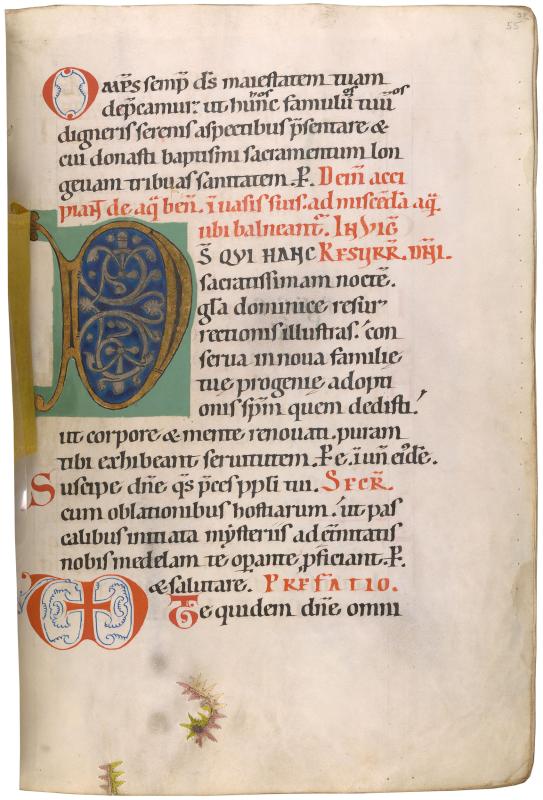 55
Omps semp ds maiestatem tuam
depcamur. ut hunc famulu tuu
digneris serenis aspectibus psentare &
cui donasti baptismi sacramentum lon
geuam tribuas sanitatem. P. Dein acci
piant de aq ben. i uasis suis. ad miscenda aq
ubi balneant. In vig
DS QVI HANC Resurr. dni.
sacratissimam nocte.
gla dominice resur
rectionis illustras. con
serua in noua familie
tue progenie adopti
onis spm quem dedisti.
ut corpore & mente renouati. puram
tibi exhibeant seruitutem. P e. i un eide.
Suscipe dne qs pces ppli tui. Secr.
cum oblationibus hostiarum. ut pas
calibus initiata mysteriis ad etnitatis
nobis medelam te operante pficiant. P.
& salutare. PREFATIO.
Te quidem dne omni